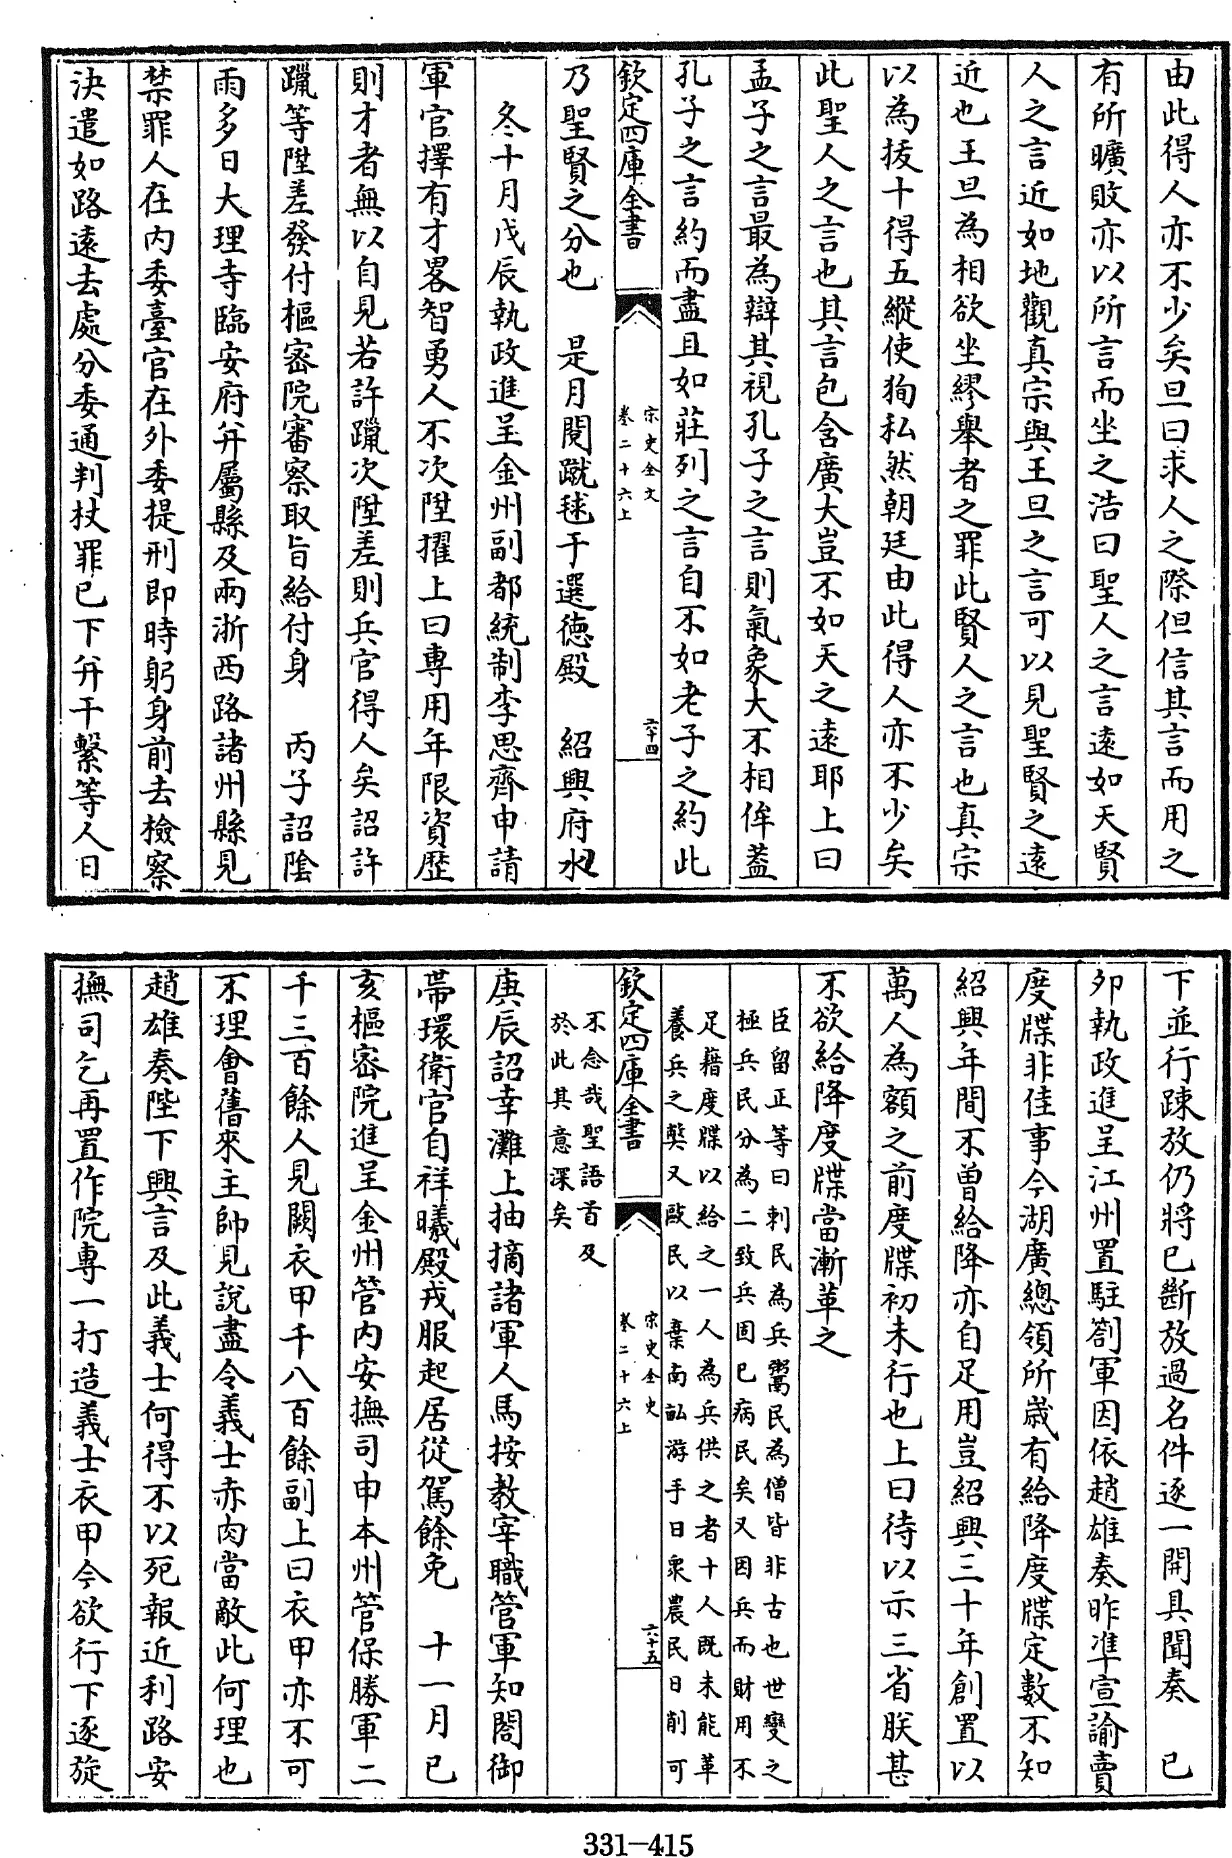 由此得人亦不少矣旦曰求人之際但信其言而用之
有所曠敗亦以所言而坐之浩曰聖人之言遠如天賢
人之言近如地觀真宗與王旦之言可以見聖賢之遠
近也王旦為相欲坐繆舉者之罪此賢人之言也真宗
以為拔十得五縱使狥私然朝廷由此得人亦不少矣
此聖人之言也其言包含廣大豈不如天之遠耶上曰
孟子之言最為辯其視孔子之言則氣象大不相侔葢
孔子之言約而盡且如莊列之言自不如老子之約此
欽定四庫全書
宋史全文
卷二十六上
六十四
乃聖賢之分也 是月閱蹴毬于選德殿 紹興府水
冬十月戊辰執政進呈金州副都統制李思齊申請
軍官擇有才畧智勇人不次陞擢上曰專用年限資歷
則才者無以自見若許躐次陞差則兵官得人矣詔許
躐等陞差發付樞密院審察取旨給付身 丙子詔陰
雨多日大理寺臨安府幷屬縣及兩浙西路諸州縣見
禁罪人在內委臺官在外委提刑即時躬身前去檢察
決遣如路遠去處分委通判杖罪已下幷干繫等人日
下並行疎放仍將已斷放過名件逐一開具聞奏 己
夘執政進呈江州置駐劄軍因依趙雄奏昨準宣諭賣
度牒非佳事今湖廣總領所歲有給降度牒定數不知
紹興年間不曾給降亦自足用豈紹興三十年創置以
萬人為額之前度牒初未行也上曰待以示三省朕甚
不欲給降度牒當漸革之
臣留正等曰刺民為兵鬻民為僧皆非古也世變之
極兵民分為二致兵固已病民矣又因兵而財用不
足藉度牒以給之一人為兵供之者十人既未能革
養兵之獘又敺民以棄南畝游手日衆農民日削可
欽定四庫全書
宋史全史
卷二十六上
六十五
不念哉聖語首及
於此其意深矣
庚辰詔幸灘上抽摘諸軍人馬按教宰職管軍知閤御
帶環衛官自祥曦殿戎服起居從駕餘免 十一月已
亥樞密院進呈金州管内安撫司申本州管保勝軍二
千三百餘人見闕衣甲千八百餘副上曰衣甲亦不可
不理會舊來主帥見說盡令義士赤肉當敵此何理也
趙雄奏陛下興言及此義士何得不以死報近利路安
撫司乞再置作院專一打造義士衣甲今欲行下逐旋
331-415